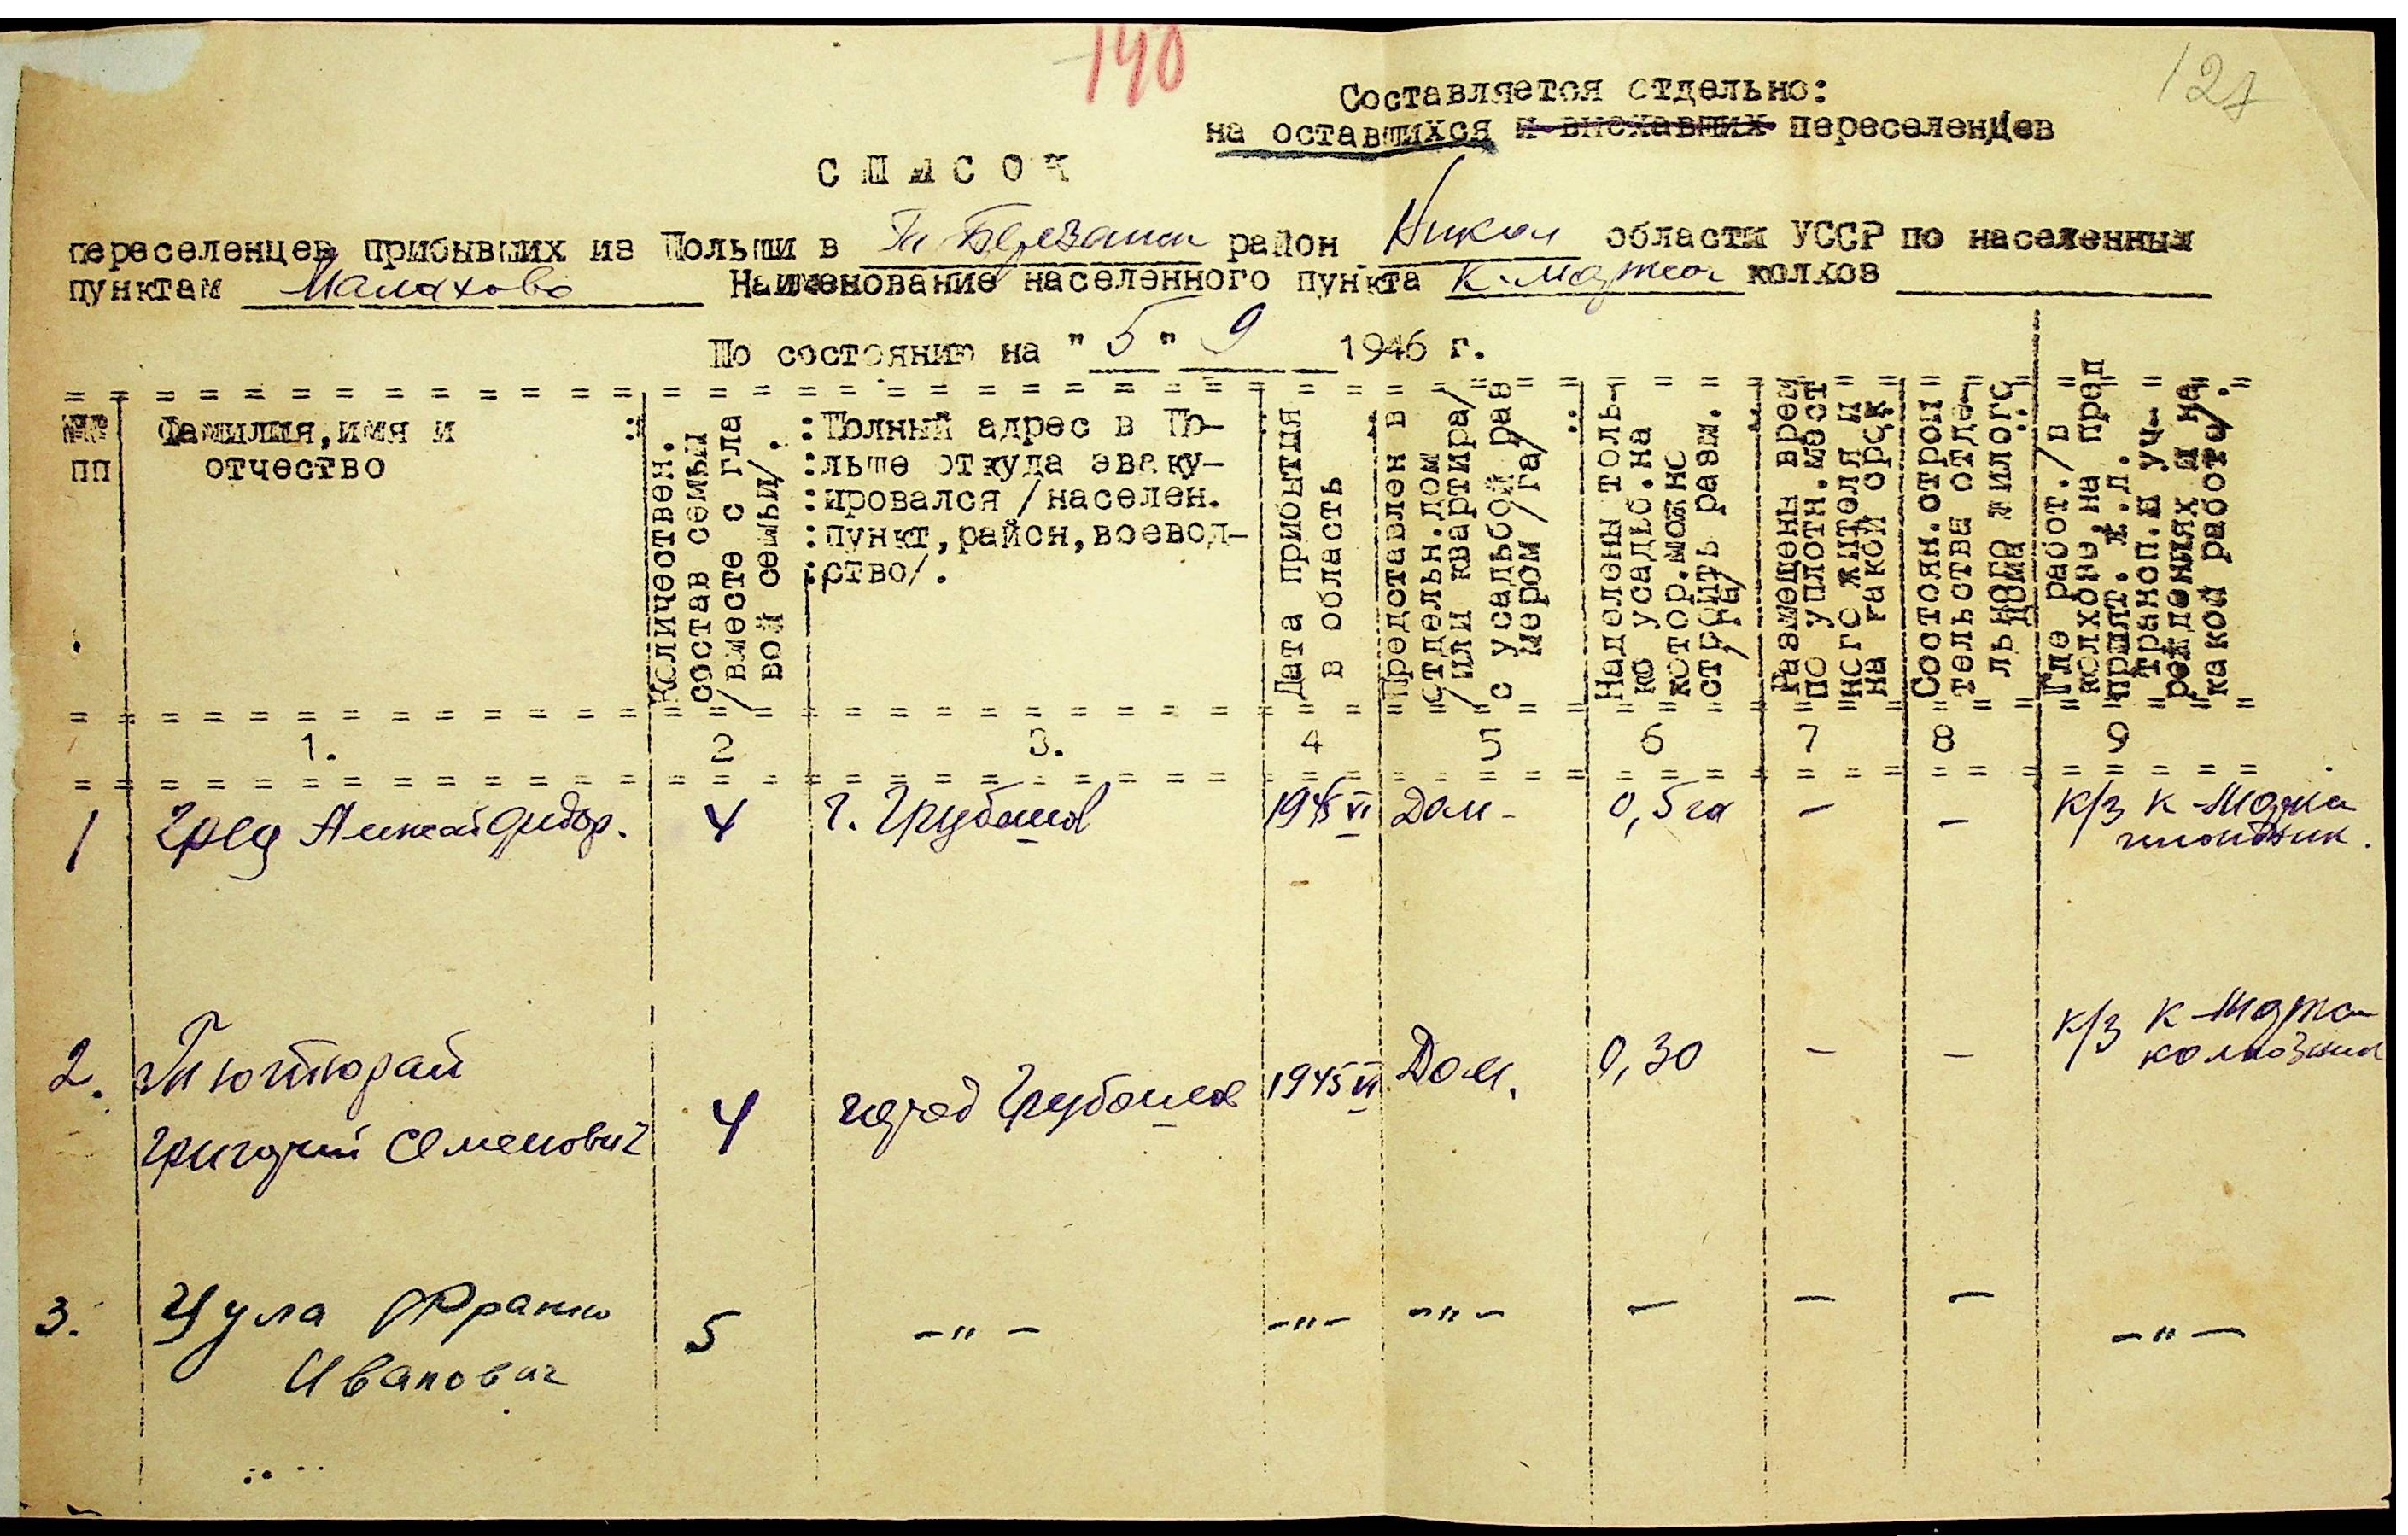 140
127
Составляется отдельно:
на оставшихся и выехавших переселенцев
СПИСОК
переселенцев прибывших из Польши в Т Березанск район Никол области УССР по населенным
пунктам Малахово Наименование населенного пункта К. Маркса колхоз
По состоянию на "5" 9 1946 г.
№№ пп
Фамилия, имя и
отчество
Количествен.
состав семьи
/вместе с гла
вой семьи/.
:Полный адрес в По-
:льше откуда эваку-
:ировался /населен.
:пункт, район, воевод-
:ство/.
Дата прибытия
в область
Предоставлен в
отдельн.дом
/или квартира/
с усадьбой раз
мером /га/
Наделены толь-
ко усадьб. на
котор. можно
строить разм.
/га/
Размещены врем
по уплотн. мест
ного жителя и
на какой срок
Состоян. строи
тельства отде-
льного жилого
дома
Где работ. /в
колхозе, на пред
прият. ж.д.
трансп. и уч-
реждениях и на
какой работе/.
1. 2 3. 4 5 6 7 8 9
1 Грец Алексей Федор. 4 г. Грубешов 1945 VI Дом - 0,5 га - - к/з К Маркса
2. Тютюрай
Григорий Семенович 4 город Грубешов 1945 VI Дом. 0,30 - - к/з К Маркса
колхозник
3. Цула Франко
Иванович 5 -"- -"- -"- - - - -"-